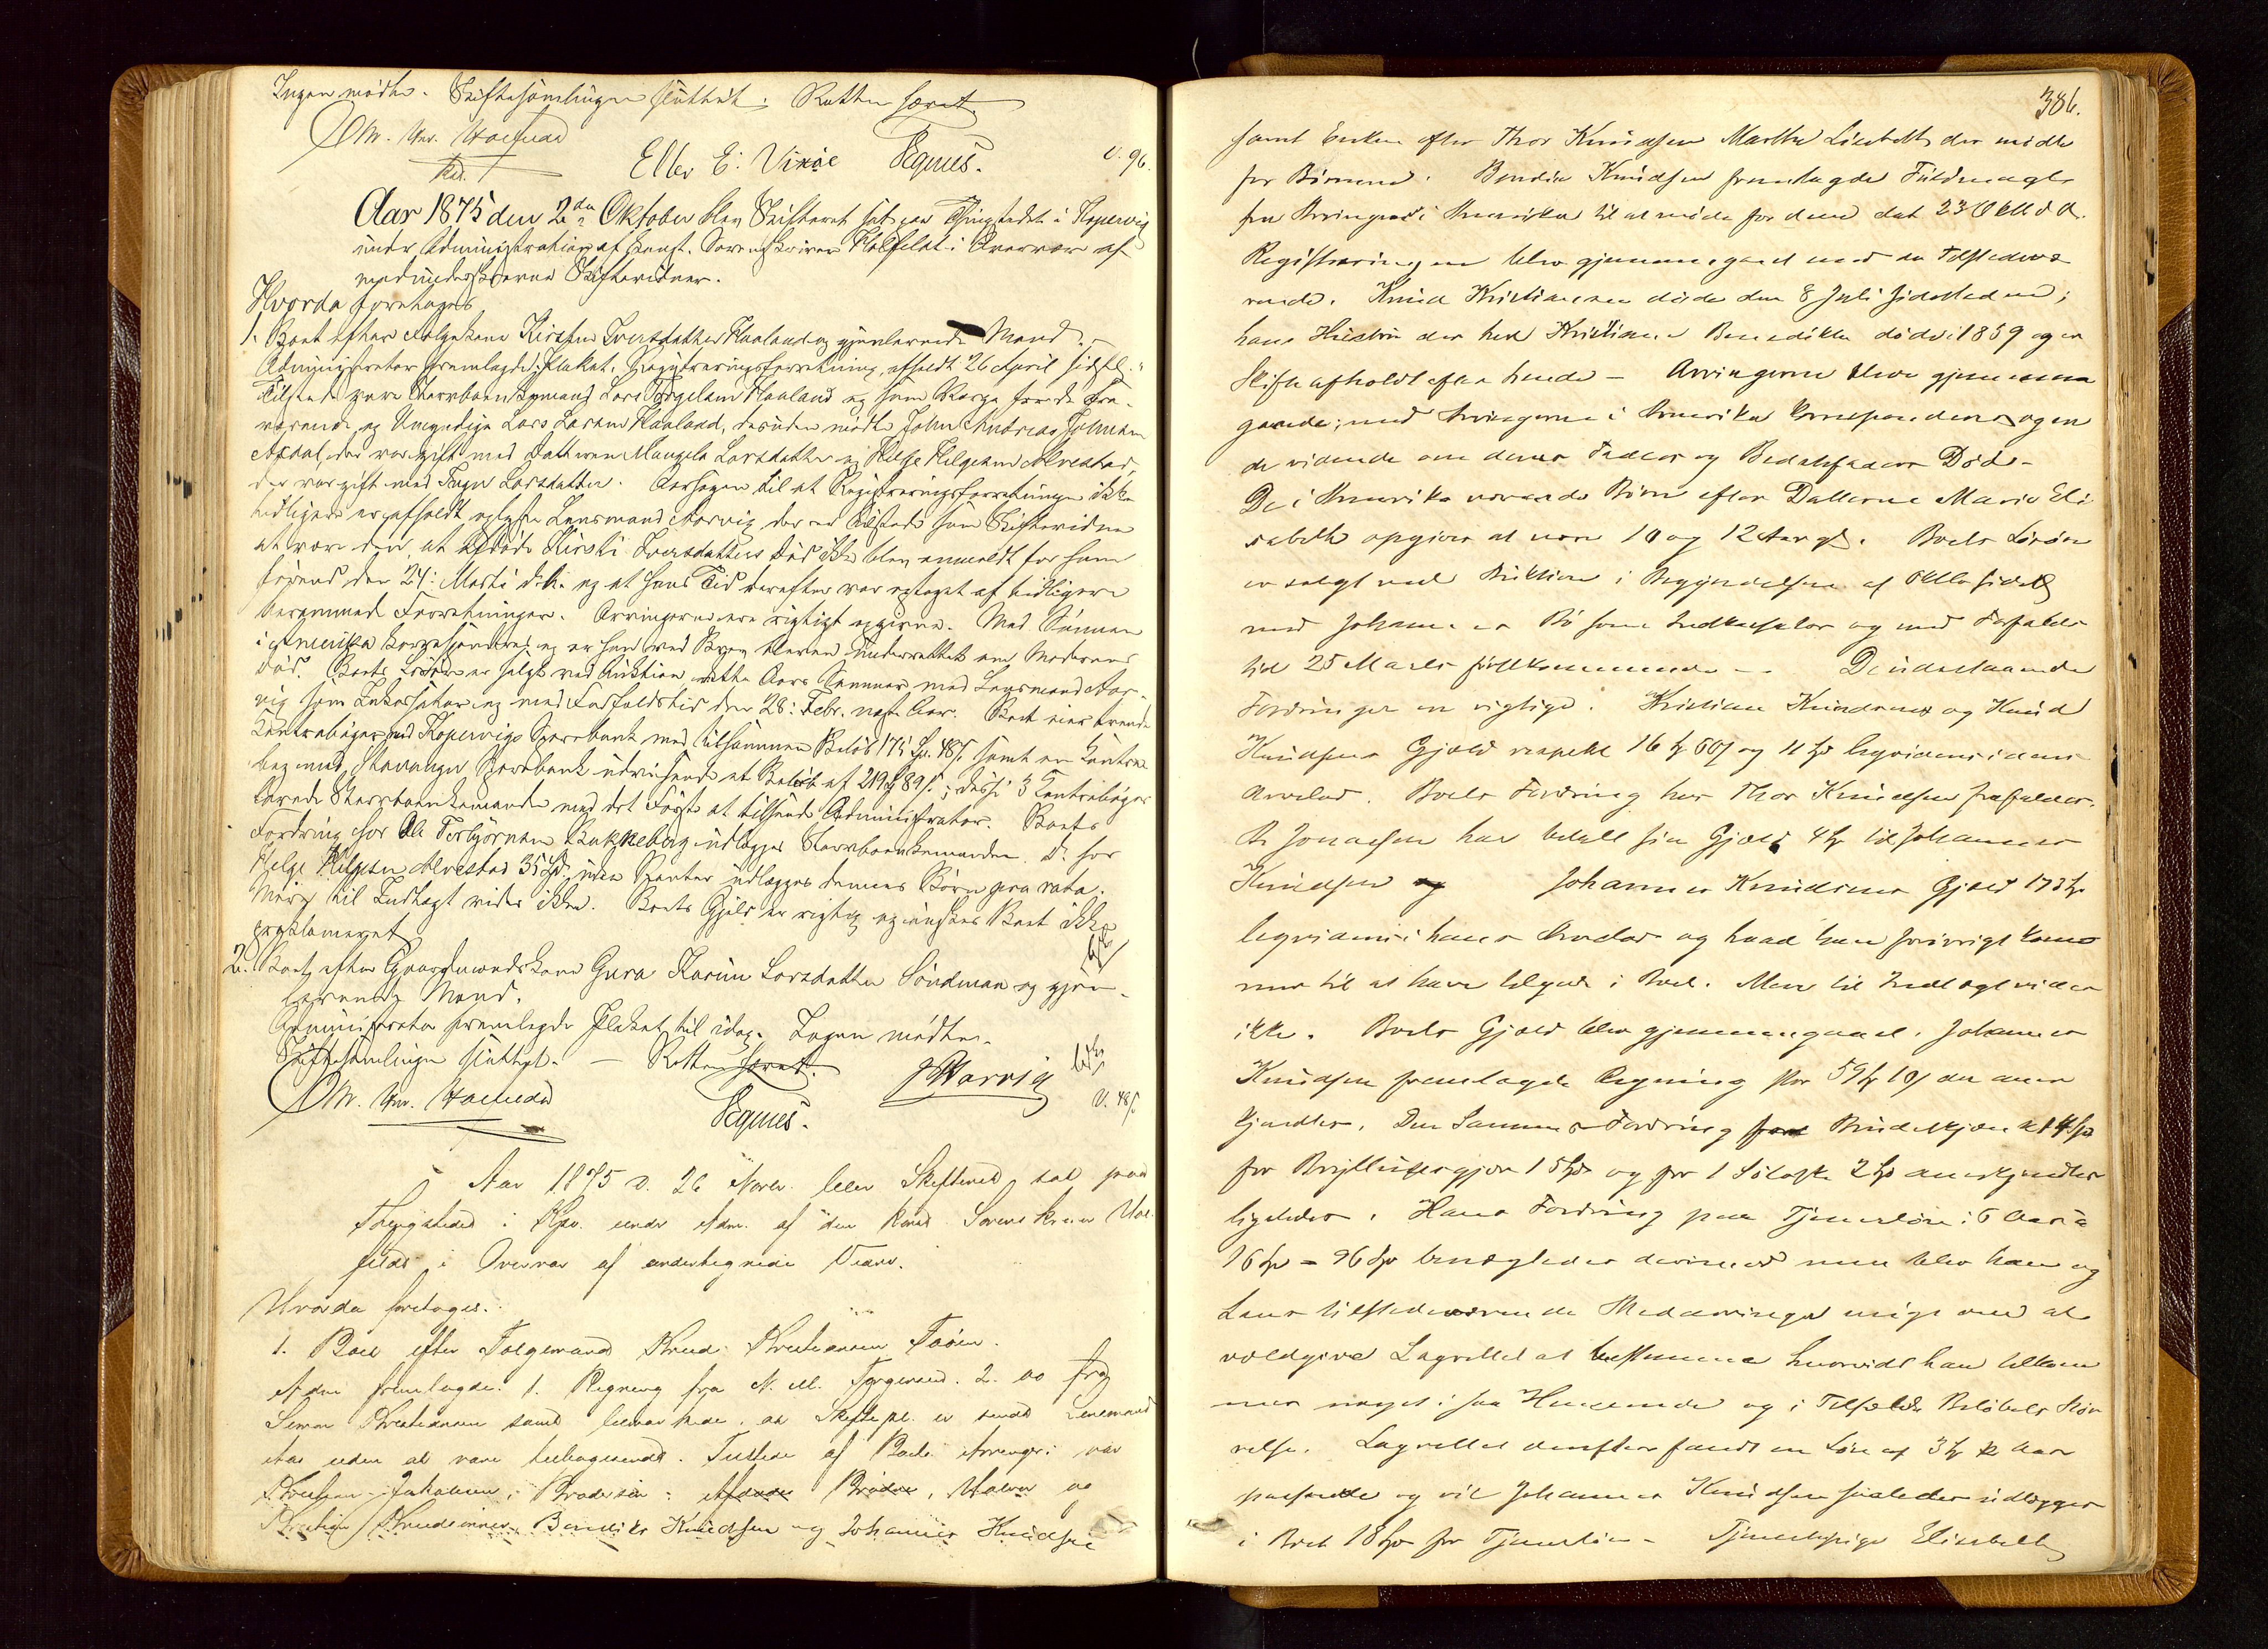 Ingen mødte. Skiftesamlingen sluttet. Retten hævet
Chr. Chr. Hoelfeldt
Eller E. Vikøe Teqnes.
V. 96.
Aar 1875 den 2den Oktober blev Skifteret sat paa Thingstedet i Kopervig
under Administration af const. Sorenskriver Hoelfeldt i Overvær af
medunderskrevne Skiftevidner.
Hvorda foretoges
1. Boet efter Folgekone Kirsten Iversdatter Haaland og gjenlevende Mand.
Administrator fremlagde: Plakat, Registreringsforretning, afholdt 26 April sidstl.
Tilstede vare Stervboenkemand Lars Torgelsen Haaland og som Værge for de fra-
værende og Umyndige Lars Larsen Haaland, desuden mødte John Andreas Johnsen
Axdal, der var gift med Datteren Mangela Larsdatter og Helge Helgesen Alvestad,
der var gift med Inger Larsdatter. Aarsagen til at Registreringsforretningen ikke
tidligere er afholdt oplyste Lensmand Aarvig der er tilstede som Skiftevidne
at være den, at afdøde Kirsti Iversdatters Død ikke blev anmeldt for ham
førend den 24: Marts d.A. og at hans Tid derefter var optaget af tidligere
berammede Forretninger. Arvingerne ere rigtigt opgivne. Med Sønnen
i Amerika korresponderes og er han ved Brev bleven underrettet om Moderens
Død. Boets Løsøre er solgt ved Auktion dette Aars Sommer med Lensmand Aar-
vig som Inkassator og med Forfaldstid den 28: Febr. næste Aar. Boet eier trende
Kontrabøger med Kopervigs Sparebank med tilsammen Beløb 175 Sp. 48 s. samt en Kontra
bog med Stavanger Sparebank udvisende et Beløb af 219 Sp 89 s.; disse 3 Contrabøger
lovede Stervboenkemanden med det Første at tilsende Administrator. Boets
Fordring hos Ole Torbjørnsen Bukkeberg udlægges Stervboenkemanden. Do hos
Helge Helgesen Alvestad 35 Spd, uden Renter udlægges dennes Børn pro rata.
Mere til Indtægt vides ikke. Boets Gjeld er rigtig og ønskes Boet ikke
proklameret
2. Boet efter Gaardmandskone Gura Karine Larsdatter Søndman og gjen-
levende Mand.
Administrator fremlagde Plakat til idag. Ingen mødte.
Skiftesamlingen sluttet. — Retten hævet.
Chr. Chr. Hoelfeldt Teqnes.
Aarvig
V. 48 s.
Aar 1875 d. 26 Novbr. blev Skifteret sat paa
Thingstedet i Kpv. under Adm. af den const. Sorenskriver Hoel-
feldt i Overvær af undertegnede Vidner.
Hvorda foretoges.
1. Boet efter Folgemand Knud Kristiansen
Adm fremlagde: 1. Regning fra N. M. Torgersen. 2. do fra
Simon Kristiansen samt bemærkede, at Skiftepl. er sendt Lensmand
Aar uden at være tilbagesendt. Tilstede af Boets Arvinger: var
Kristian Johannesen, Brodersøn Afdødes Brødre, og
Kristian Knudsen, Bendiks Knudsen og Johannes Knudsen
386.
samt Enken efter Thor Knudsen Martha Lisebeth der mødte
for Børnene. Bendix Knudsen fremlagde Fuldmagt
fra Arvingerne i Amerika til at møde for dem dat 23 Oktb d A.
Registreringen blev gjennemgaaet med de Tilstedevæ
rende. Knud Kristiansen døde den 8 Juli sidstleden;
hans Hustru der hed Kristiane Benedikte døde i 1859 og er
Skifte afholdt efter hende — Arvingerne bleve gjennem
gaaede; med Arvingerne i Amerika korresponderes og ere
de vidende om deres Faders og Bedstefaders Død.
De i Amerika værende Børn efter Datteren Marie Eli
sabeth opgives at være 10 og 12 Aar gl. Boets Løsøre
er solgt ved Auktion i Begyndelsen af Oktbr sidstl
med Johannes Bø som Indkassator og med Forfalds-
tid 25 Marts førstkommende — De udestaaende
Fordringer ere rigtige. Kristian Knudsens og Knud
Knudsens Gjæld respekt 16 Sp 60 s og 11 Sp liqvideres i deres
Arvelod. Boets Fordring hos Thor Knudsen frafaldes.
Jonassen har betalt sin Gjæld 4 Sp til Johannes
Knudsen Johannes Knudsens Gjæld 173 Sp
liqvideres i hans Arvelod og hvad han forøvrigt kom-
mer til at have tilgode i Boet. Mere til Indtægt vides
ikke. Boets Gjæld blev gjennemgaaet. Johannes
Knudsen fremlagde Regning stor 59 Sp 10 s der aner
kjendtes. Den Sammes Fordring Brudeskjænk 14 Sp
for Bryllupsgjør 15 Sp og for 1 2 Sp anerkjendtes
ligeledes. Hans Fordring paa Tjenerløn i 6 Aar à
16 Sp = 96 Sp benægtedes derimod men blev han og
hans tilstedeværende Medarvinger enige om at
voldgive Lagrettet at bestemme hvorvidt han tilkom
mer noget i saa Henseende og i Tilfælde Beløbets Stør
relse. Lagrettet derefter fandt en Løn af 3 Sp pr Aar
passende og vil Johannes Knudsen saaledes udlægges
i Boet 18 Sp for Tjenerløn — Tjenestepige Elisabeth